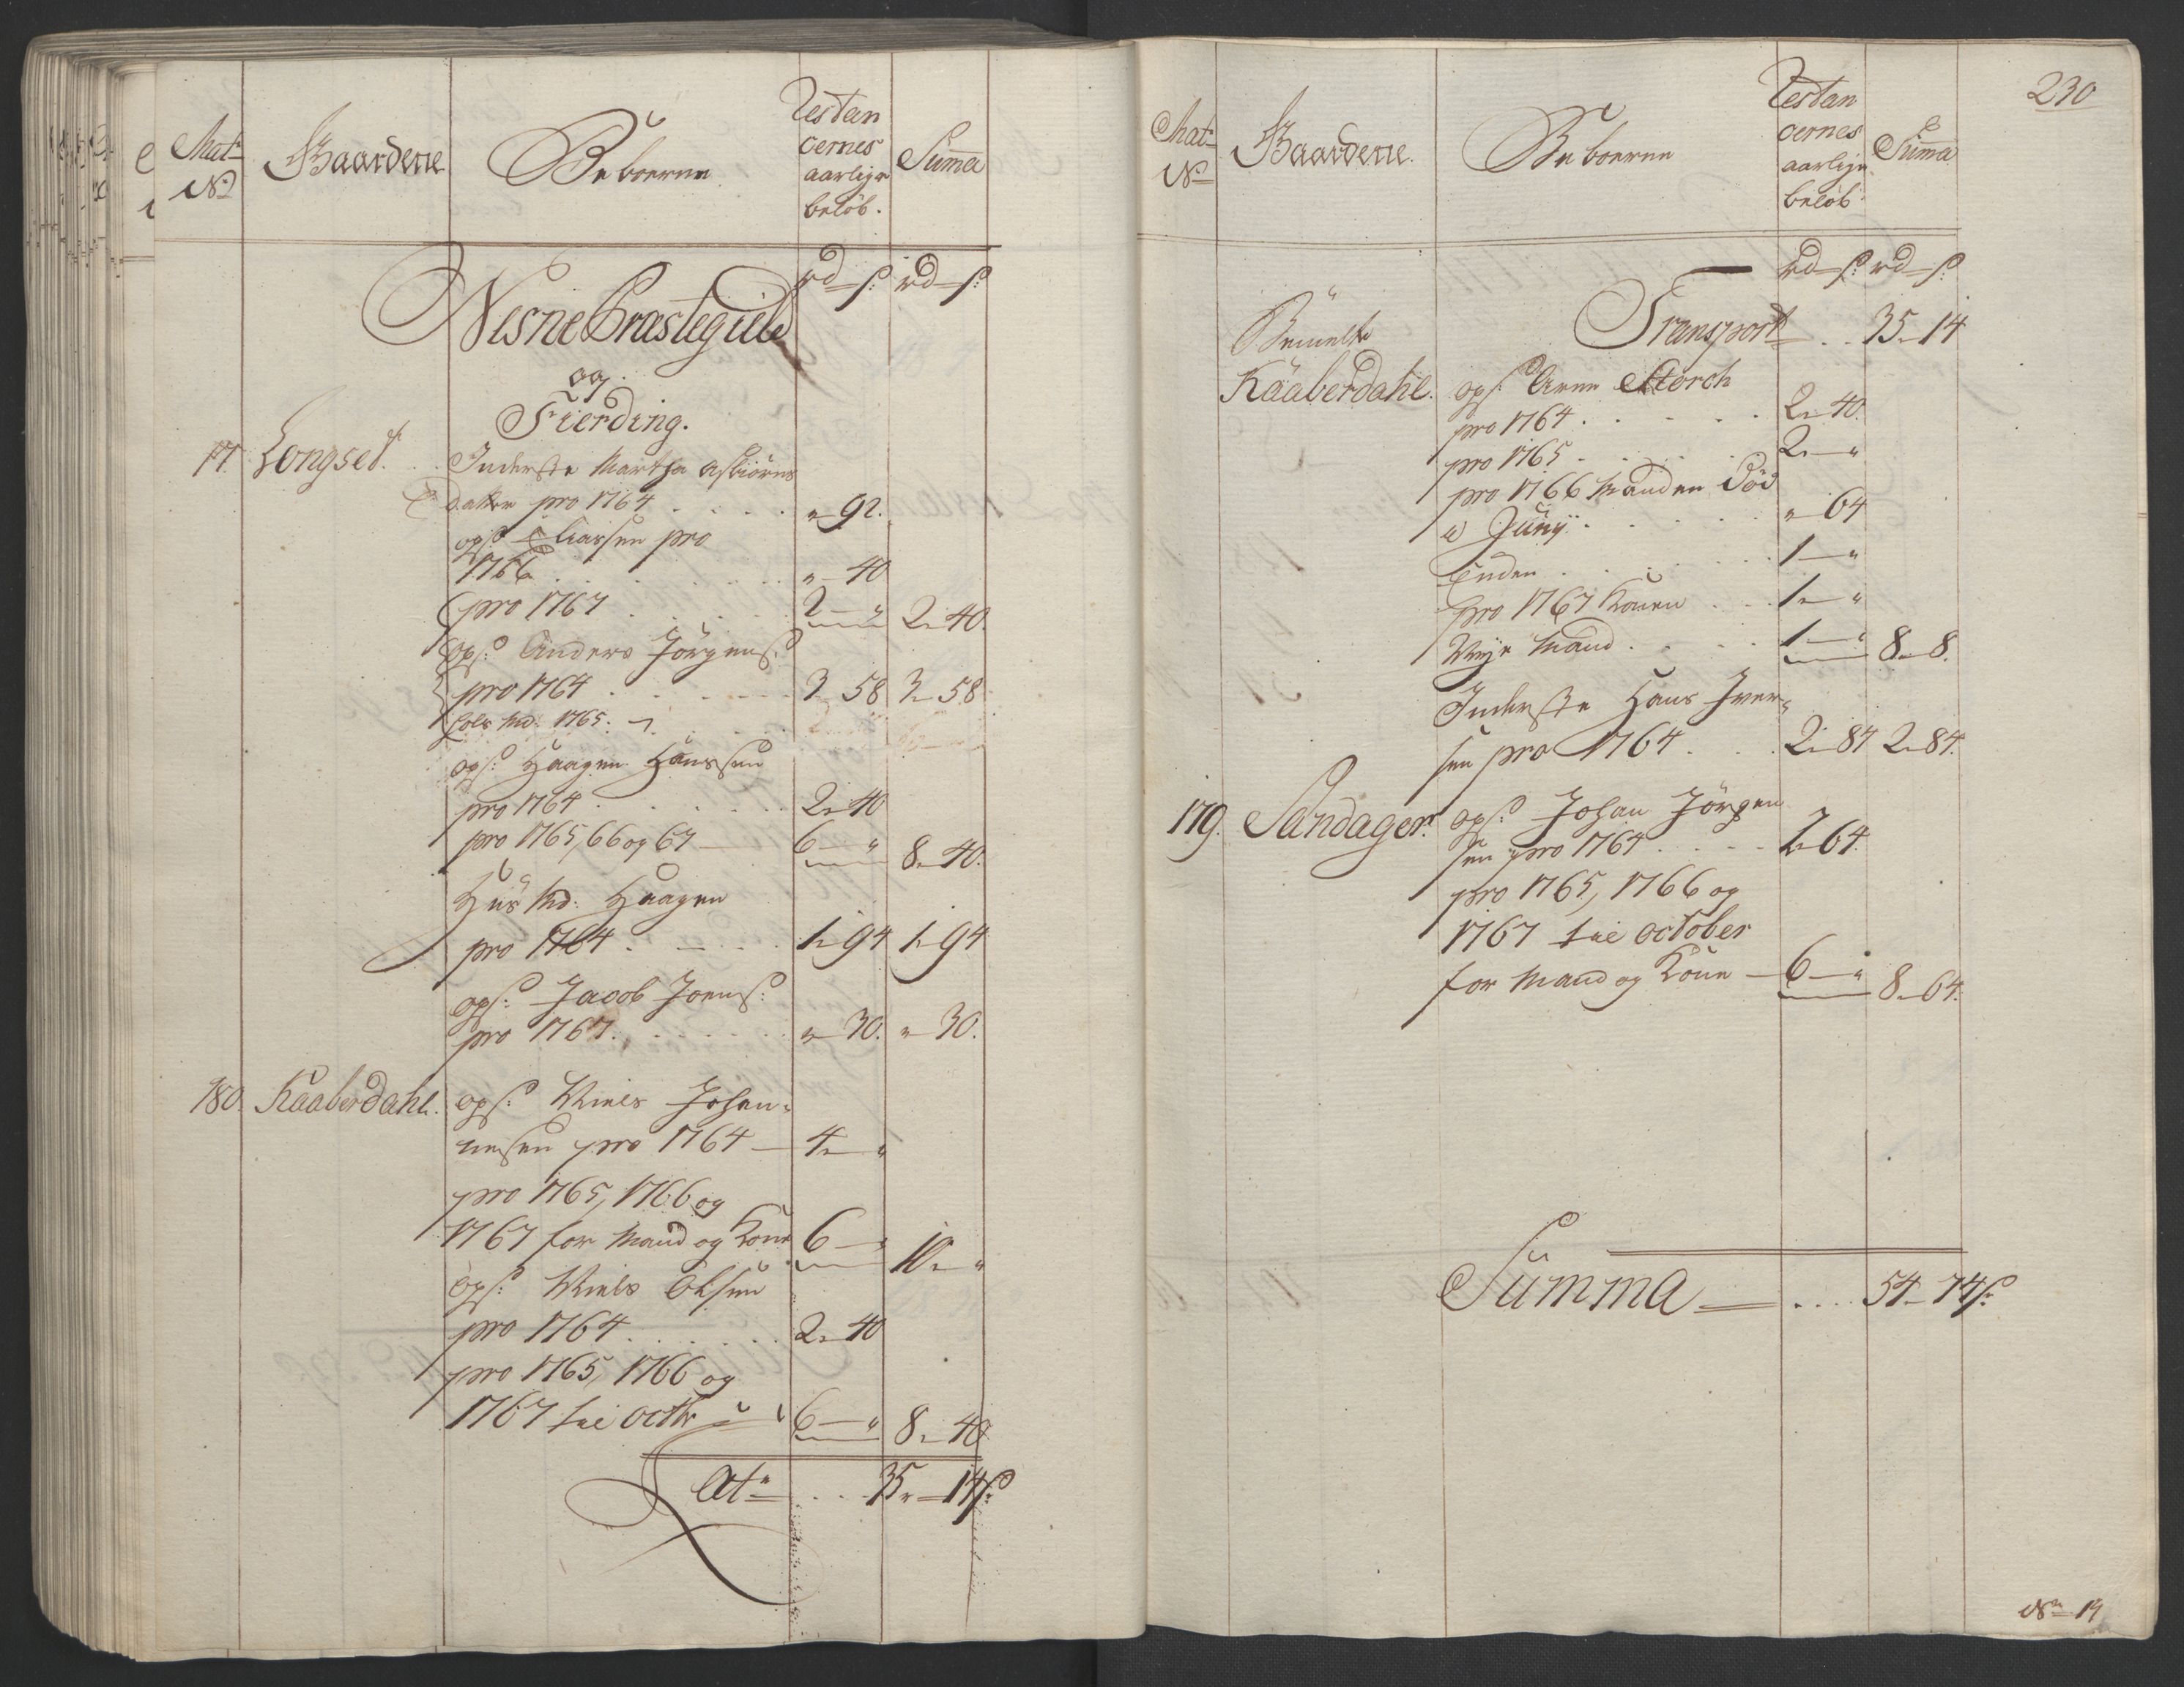 Mat: No
Gaardene
Beboerne
Restan
cernes
aarlige
beløb.
Summa
rd ß: rd ß:
Nesne Præstegield
og
Fierding.
171. Longset.. Inderste Martha Asbiørns
datter pro 1764 . . . . " 92.
ops: Eliassen pro
1766 . . . . . " 40
pro 1767 . . . . 2 — " 2 „ 40.
ops: Anders Jørgens:
pro 1764 . . . . 3 58 3 „ 58
1765.
ops: Haagen Hanssen
pro 1764 . . . . 2 „ 40
pro 1765, 66 og 67 — 6 — " 8 „ 40.
Huus Md: Haagen
pro 1764 . . . . 1 „ 94 1 „ 94
ops: Jacob Joens:
pro 1767 . . . . " 30. " 30.
180. Kaaberdahl. ops: Niels Johan-
nesen pro 1764 — 4 „ "
pro 1765, 1766 og
1767 for Mand og Kone 6 — " 10 „ "
ops: Niels Olsen
pro 1764 . . . . 2 „ 40
pro 1765, 1766 og
1767 til Octbr 6 — " 8 „ 40
Lat: . . . 35 „ 14 ß:
230
Mat: No
Gaardene.
Beboerne
Restan
cernes
aarlige
beløb
Summa
rd ß: rd ß:
Transport . . 35 „ 14
Bemelte
Kaaberdahl. ops: Arne Storch
pro 1764 . . . . 2 „ 40.
pro 1765 . . . . 2 — "
pro 1766 Manden Død
i Juny . . . . " 64
Enken . . . . 1 — "
pro 1767 Konen . . 1 „ "
Nye Mand . . . 1 — " 8 „ 8.
Inderste Hans Iver-
sen pro 1764 . . . 2 „ 84 2 „ 84.
179. Sandager. ops: Johan Jørgen
sen pro 1764 . . . 2 „ 64.
pro 1765, 1766 og
1767 til October
for Mand og Kone — 6 — " 8 „ 64.
Summa — . . . . 54 „ 74 ß:
No 19